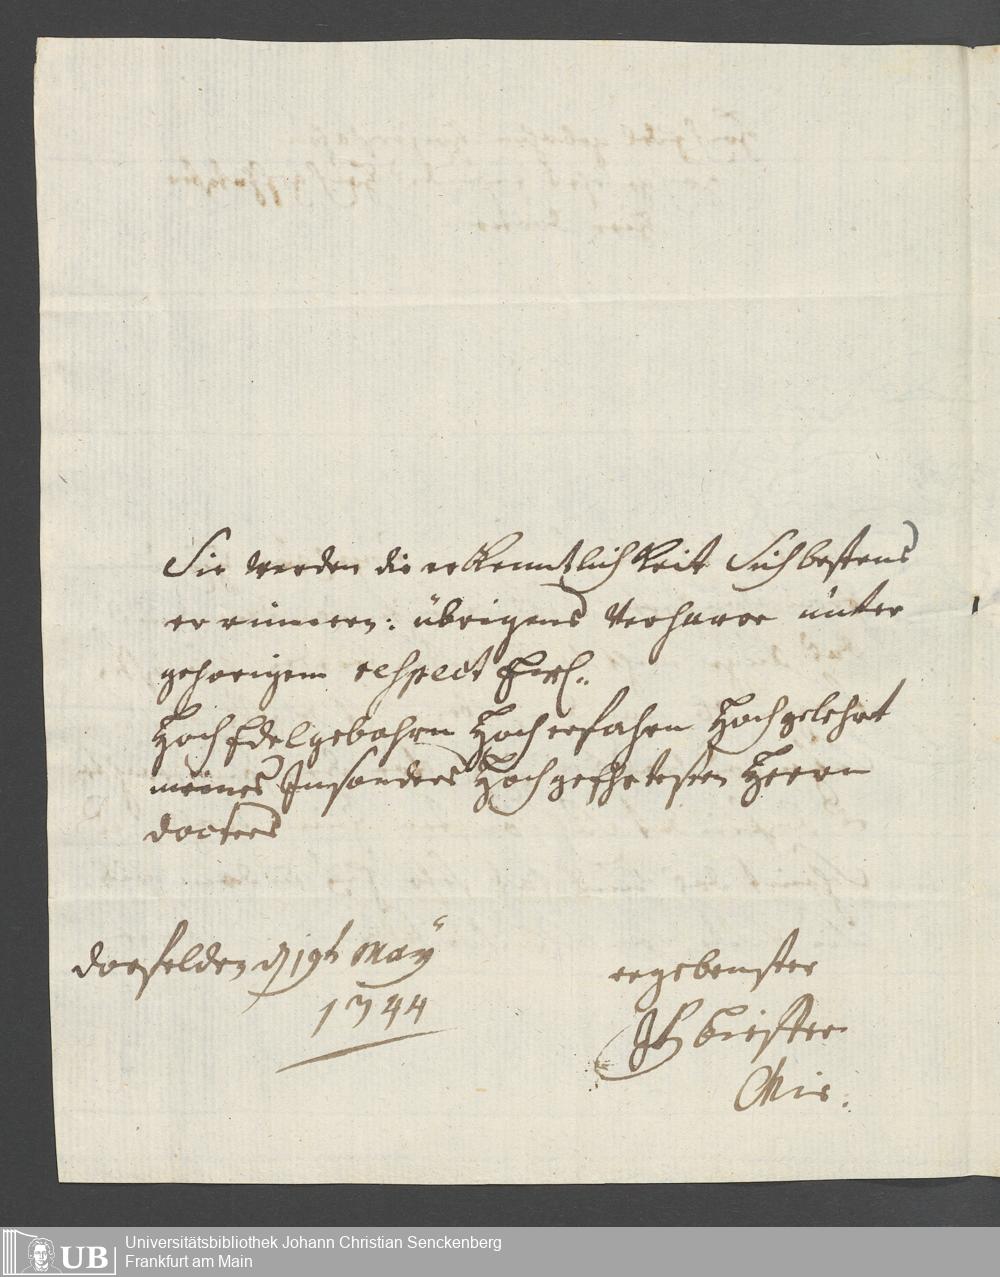 Sie werden die erkenntlichkeit Sich bestens
errinnern: übrigens verharre unter
gehorigem respect
Hoch Edelgebohrn Hoch erfahrn Hochgelehrt
meines Insonders Hochgeehrtesten Herrn
docters
dorfelden d 19t May
1744
ergebenster
Biester
Chir:
UB
Universitätsbibliothek Johann Christian Senckenberg
Frankfurt am Main